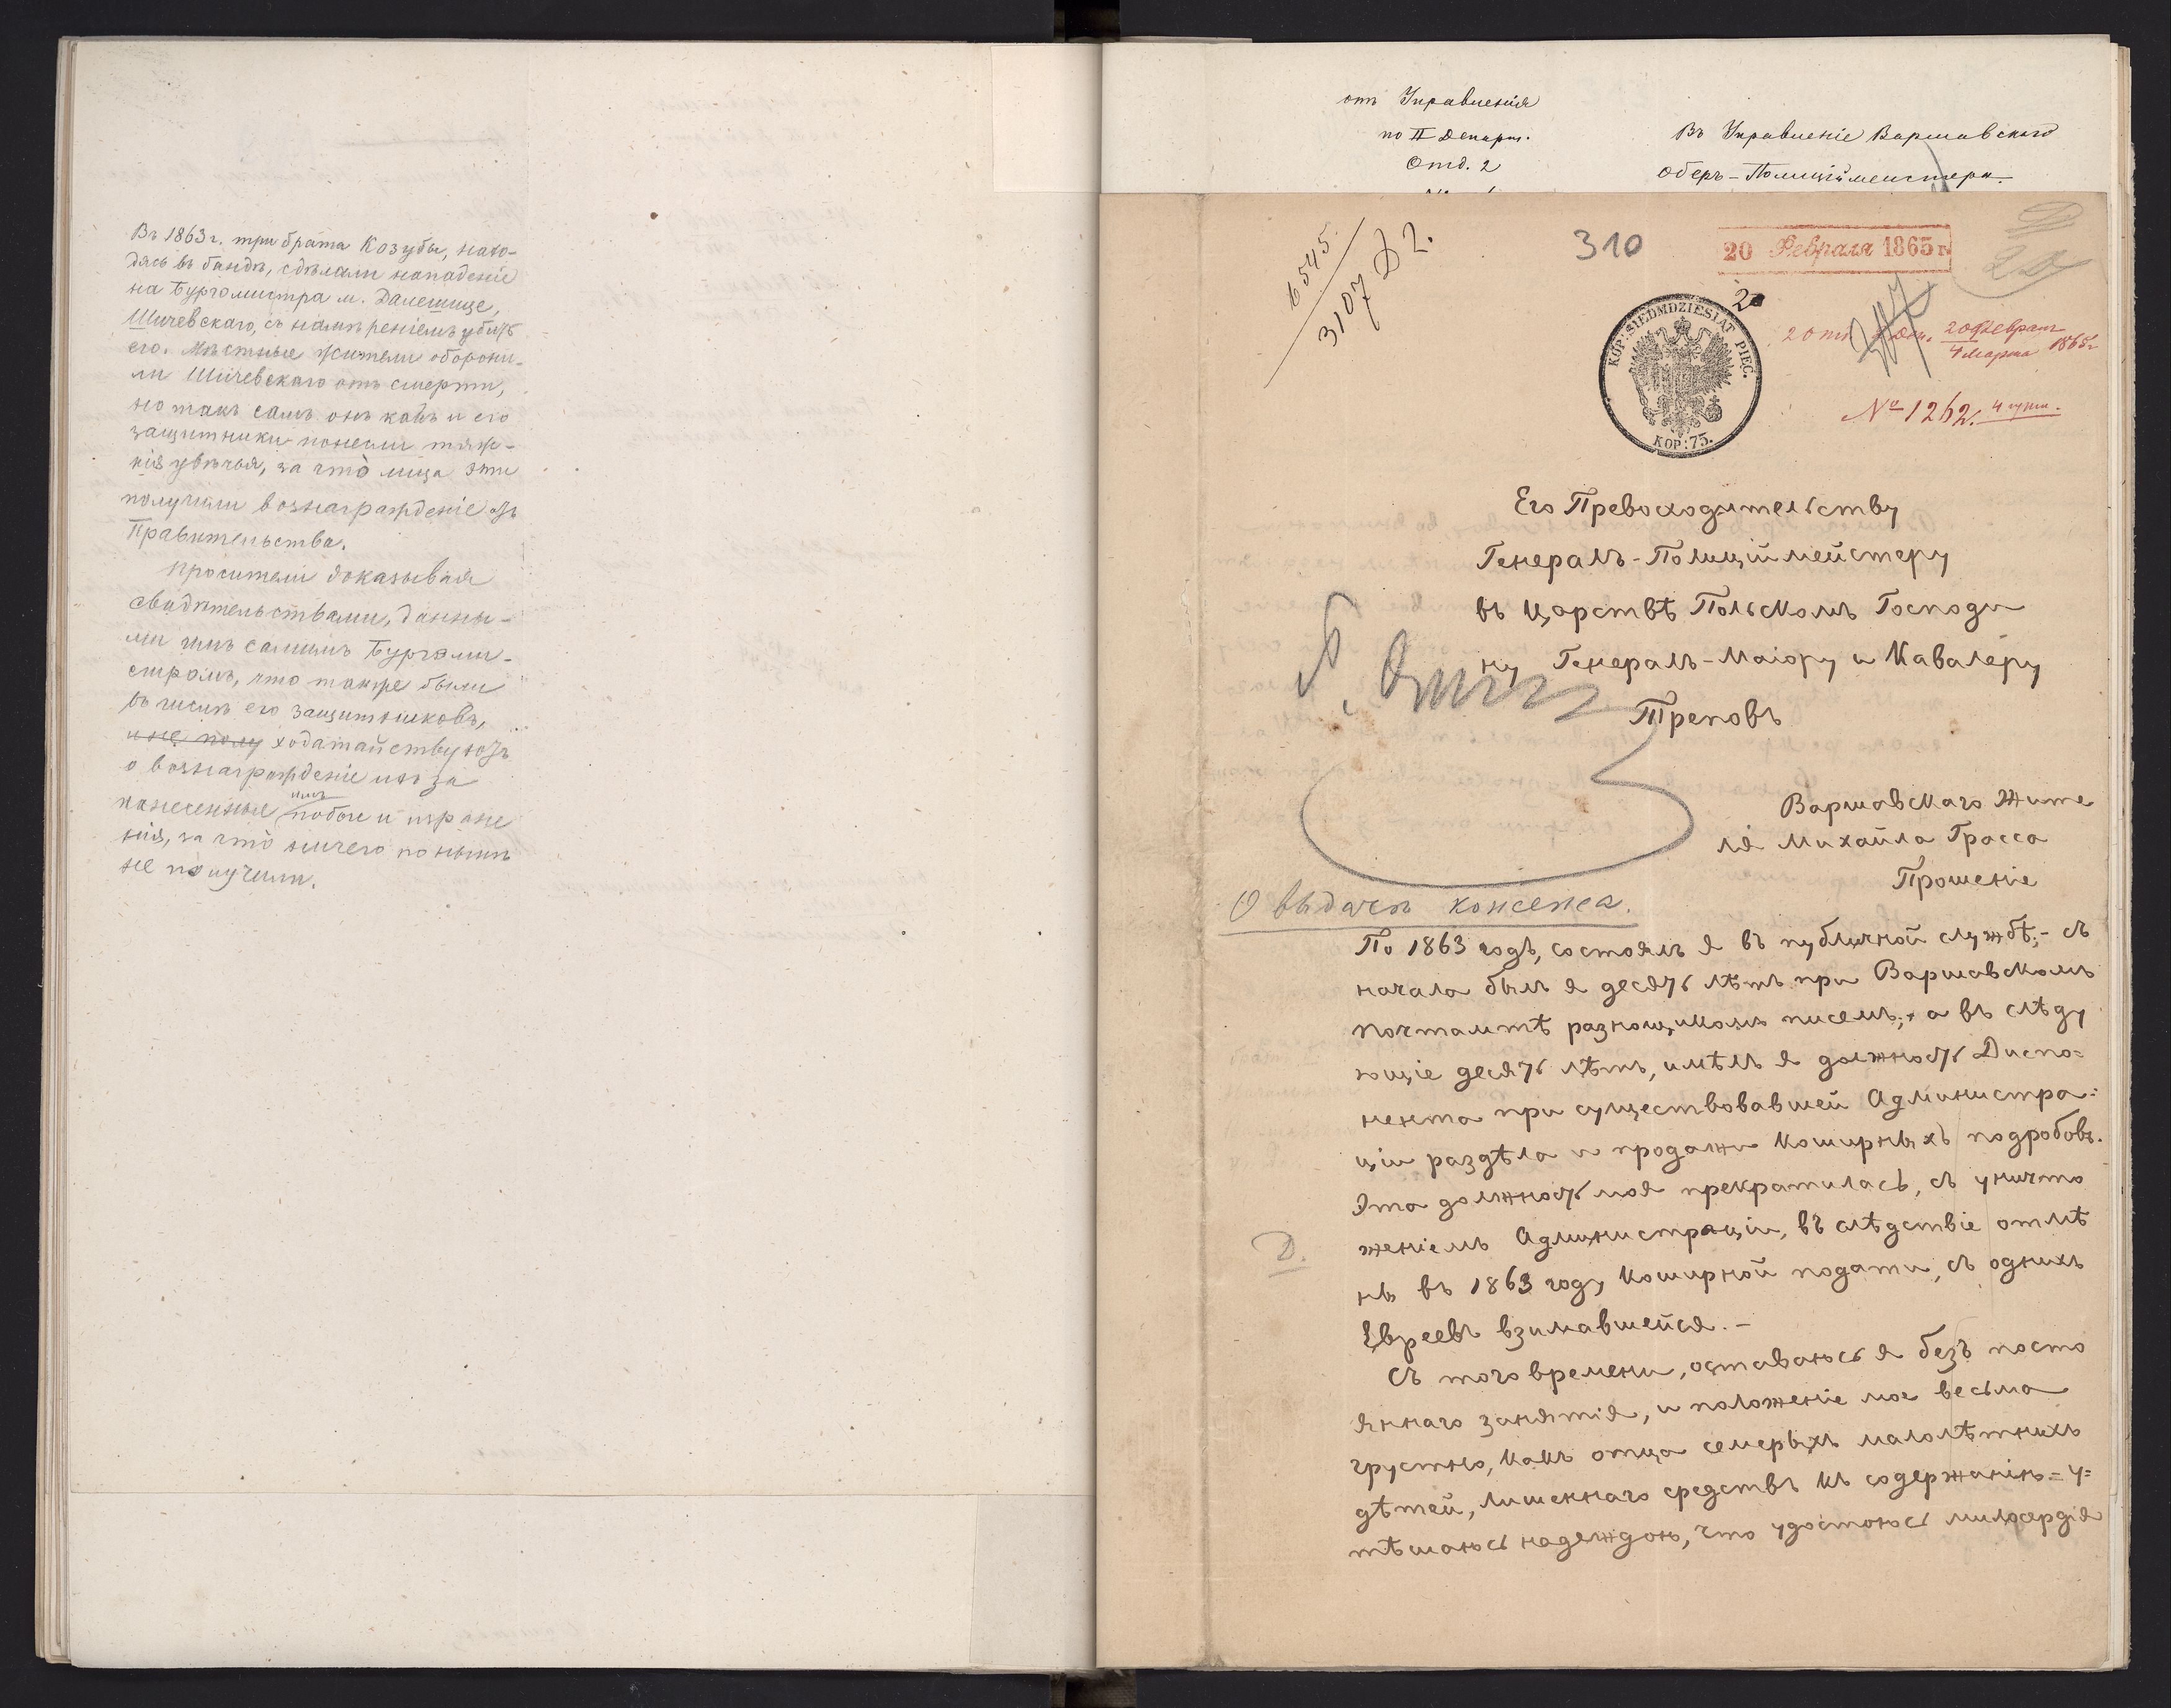 Въ 1863 г. три брата Козубы, нахо-
дясь въ бандѣ, сдѣлали нападеніе
на Бургомистра м. Далешице,
Шичевскаго, съ намѣреніемъ убить
его. Мѣстные жители оборони-
ли Шичевскаго отъ смерти,
но такъ самъ онъ какъ и его
защитники понесли тяж-
кія увѣчья, за что лица эти
получили вознагражденіе отъ
Правительства.
Просители доказывая
свидѣтельствами, данны-
ми имъ самимъ Бургоми-
стромъ, что также были
въ числѣ его защитниковъ,
и не полу ходатайствуютъ
о вознагражденіе ихъ за
нанесенные имъ побои и изране
нія, за что ничего по нынѣ
не получили.
отъ Управленія
по II Департ.
Отд. 2
Въ Управленіе Варшавскаго
Оберъ-Полиціймейстера.
6545
3107 Д 2.
310
20 Февраля 1865 г.
20
2
KOP: SIEDMDZIESIĄT PIĘĆ.
KOP: 75.
20 Февраля
4 Марта 1865 г.
№ 1262.
Его Превосходительству
Генералъ-Полиціймейстеру
въ Царствѣ Польскомъ Господи
ну Генералъ-Маіору и Кавалеру
Треповъ
Варшавскаго Жите
ля Михайла Грасса
Прошеніе
О выдачѣ консенса.
По 1863 годъ, состоялъ я въ публичной службѣ;- съ
начала былъ я десять лѣтъ при Варшавскомъ
Почтамтѣ разнощикомъ писемъ;- а въ слѣду
ющіе десять лѣтъ, имѣлъ я должность Диспо=
нента при существовавшей Администра=
ціи раздѣла и продажи Коширныхъ подробовъ.
Эта должность моя прекратилась, съ уничто
женіемъ Администраціи, въ слѣдствіе отмѣ
ны въ 1863 году Коширной подати, съ однихъ
Евреевъ взимавшейся.-
Д.
Съ того времени, оставаюсь я безъ посто
яннаго занятія, и положеніе мое весьма
грустно, какъ отца семерыхъ малолѣтнихъ
дѣтей, лишеннаго средствъ къ содержанію=у=
тѣшаюсь надеждою, что удостоюсь милосердія